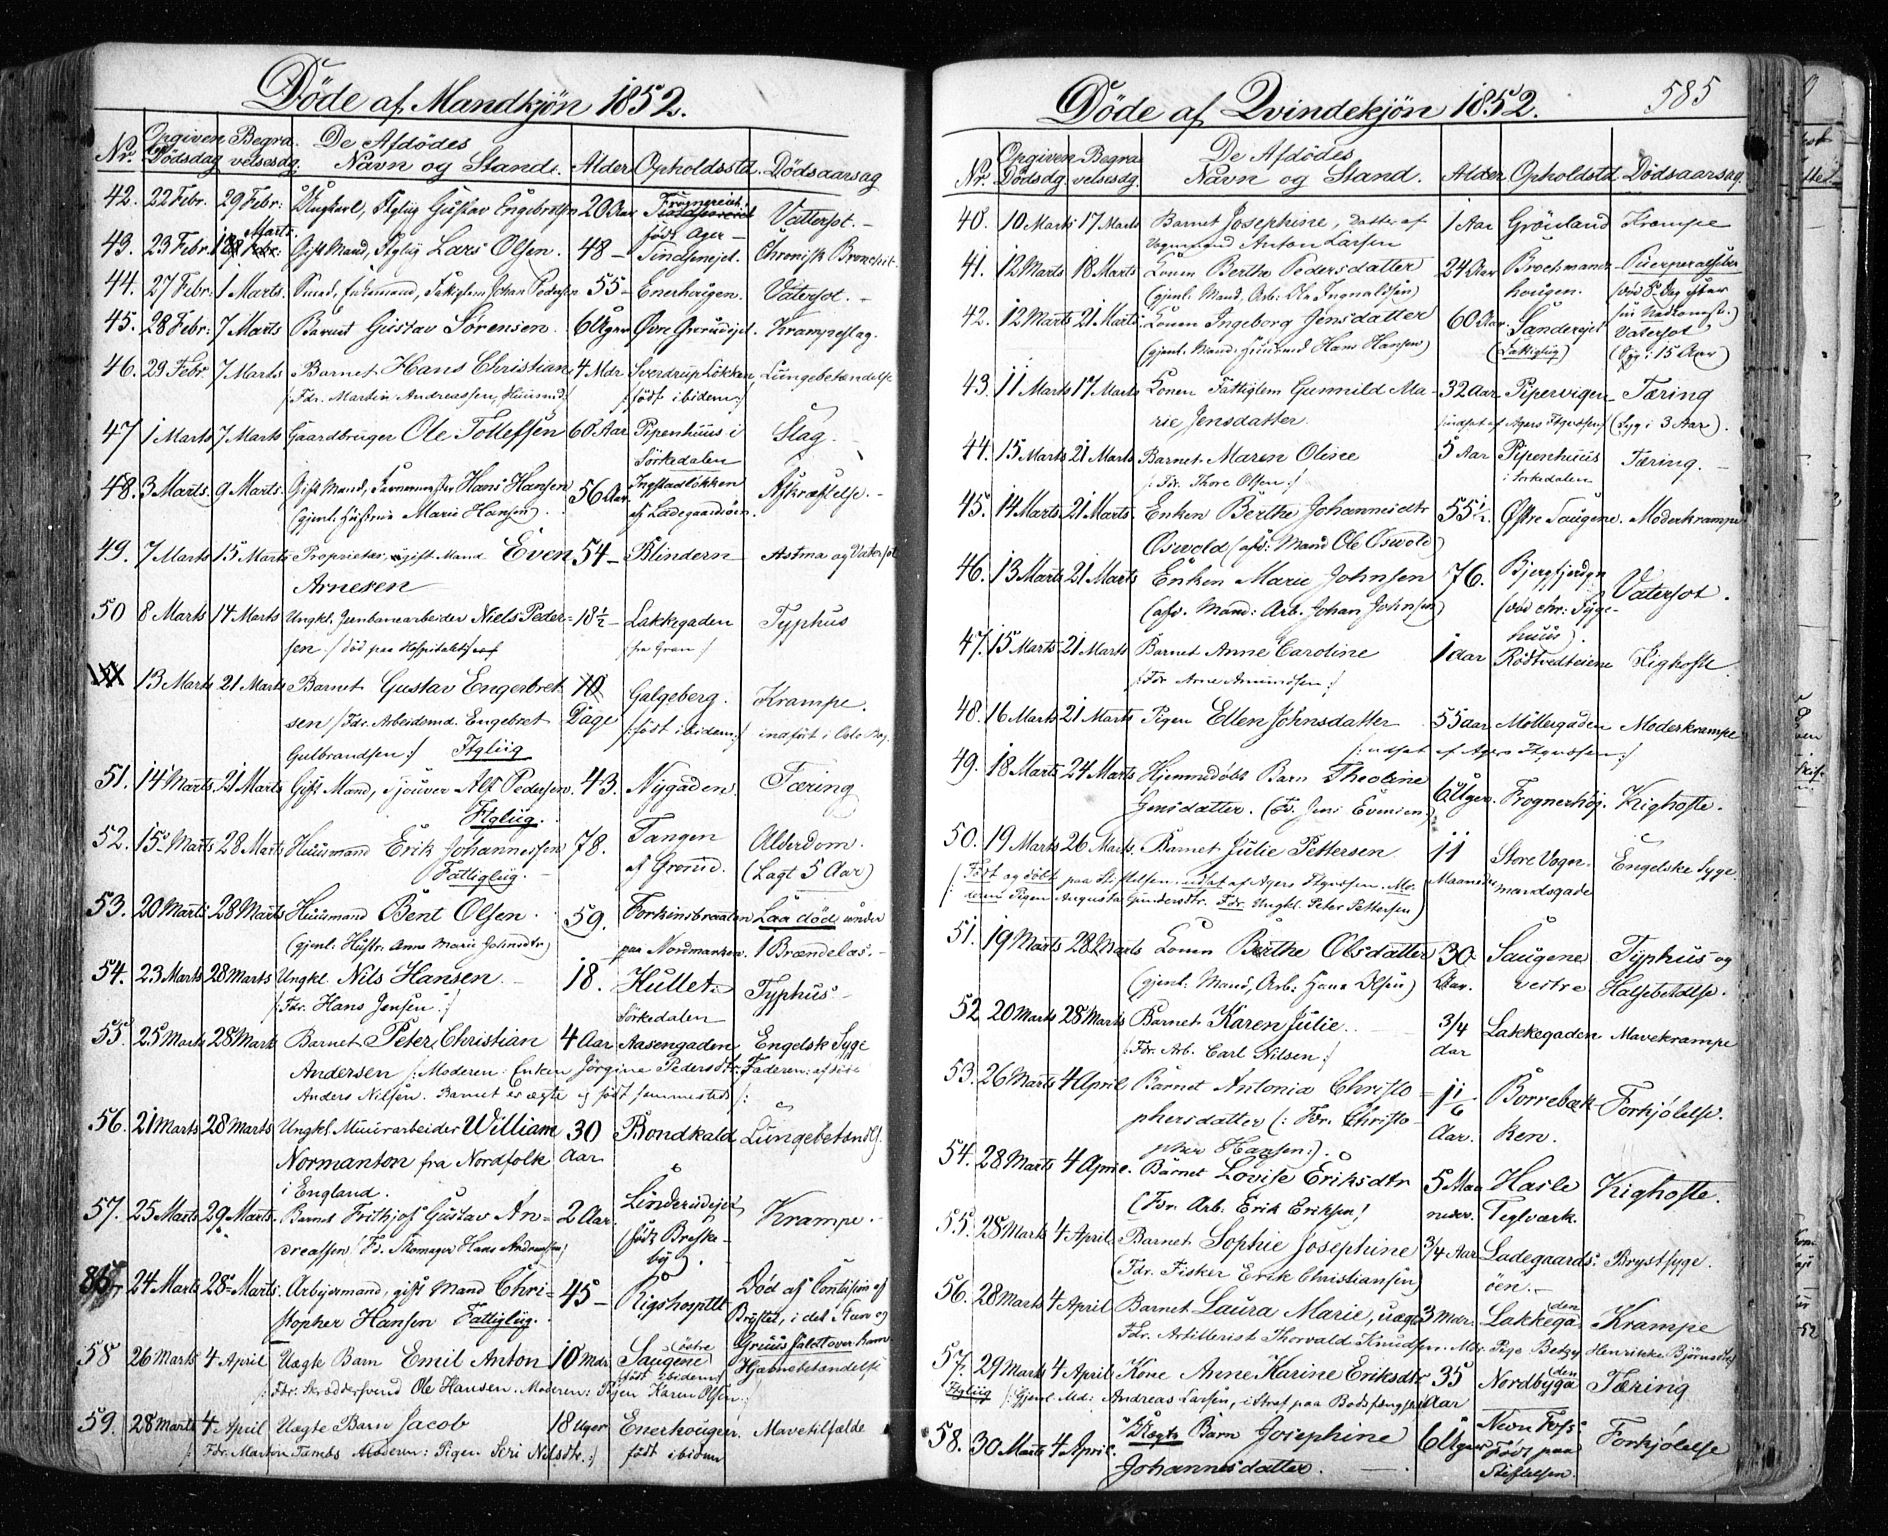 Döde af Mandkjön 1852.
Nr. Opgiven Dödsdag Begravelsesdg. De Afdödes Navn og Stand. Alder Opholdsstd. Dödsaarsag
42. 22 Febr. 29 Febr. Ungkarl, Ftgliig Gustav Engebretsen 20 Aar
födt Ager – Vattersot. –
43. 23 Febr. Marts. Gift Mand, Ftgliig Lars Olsen. 48 – Chronisk Bronchit.
44. 27 Febr: 1 Marts. Smed, Enkemand, Fattiglem Johan Pedersen 55 – Enerhougen. Vatersot. –
45. 28 Febr: 7 Marts Barnet Gustav Sörensen. 6 Uger Övre Grorudejet. Krampeslag.
46. 29 Febr. 7 Marts Barnet Hans Christian 4 Mdr. Sverdrup Lökken, Lungebetændelse
/: Fdr. Martin Andreassen, Huusmd :/ /: födt ibidem :/
47 1 Marts 7 Marts Gaardbruger Ole Tollefsen 60 Aar Pipenhuus i Slag.
Sörkedalen
48. 3 Marts. 9 Marts. Gift Mand, Hans Hansen 56 Aar. Ingstadlökken Afkræftelse. –
(gjenl: Hustrue Marie Hansen). af Ladegaardsöen.
49. 7 Marts 15 Marts Proprietær, gift Mand Even 54 – Blindern Astma og Vatersot
Arnesen
50 8 Marts 14 Marts Ungkl. Jernbanearbeider Niels Peder= 18½ – Lakkegaden Typhus
sen /: död paa Hospitalet /: fra Gran :/
13 Marts 21 Marts Barnet Gustav Engebret 10 Galgeberg. Krampe.
sen /: Fdr. Arbeidsmd. Engebret Dage /: födt ibidem :/ indfört i Oslo Bog.
Gulbrandsen :/ Ftgliig
51. 14 Marts 21 Marts Gift Mand, Sjouver Alf Pedersen. 43. Nygaden. Tæring
Ftgliig.
52. 15 Marts 28 Marts Huusmand Erik Johannessen 78. Tangen Alderdom.
Fattigliig. af Grorud. (Lagt 5 Aar)
53. 20 Marts 28 Marts Huusmand Bent Olsen. 59. Forkinsbraaten Laa död under
(gjenl: Hustr. Anne Marie Johnsdtr) paa Nordmarken. 1 Brændelas. –
54. 23 Marts 28 Marts Ungkl Nils Hansen. – 18. Hullet: Typhus –
/: Fdr. Hans Jensen :/ Sörkedalen
55. 25 Marts 28 Marts Barnet Peter Christian 4 Aar Aasengaden Engelsk Syge
Andersen /: Moderen: Enken Jörgine Pedersdtr. Faderen: afdöde
Anders Nilsen. Barnet er ægte og födt sammesteds :/
56. 21 Marts 28 Marts Ungkl Muurarbeider William 30 Bondkald Lungebetændels.
Normanton fra Nordfolk Aar
i England.
57. 25 Marts 29 Marts. Barnet Frithjof Gustav An= 2 Aar. Linderudejet Krampe.
dreassen /: Fr. Skomager Hans Andreassen :/ (födt Breske-
by).
24 Marts 28 Marts. Arbejdsmand, gift Mand Chri- 45 – Rigshospitlt Död af Contusion af
stopher Hansen Fattigliig. Brystet, i det i Steen og
58 26 Marts 4 April Uægte Barn Emil Anton 10 Mdr. (östre Saugene Gruus faldt over ham
födt ibidem Hjærnebetændelse
/: Fdr. Skræddersvend Ole Hansen. Moderen: Pigen Karen Olsen :/
59. 28 Marts 4 April Uægte Barn Jacob 18 Uger Enerhougen. Mavetilfælde
/: Fdr. Morten Tambs Moderen: Pigen Seri Nilsdtr. :/ födt ibidem
Döde af Qvindekjön 1852. 585
Nr. Opgiven Dödsdg. Begravelsesdg. De Afdödes Navn og Stand. Alder Opholdstd Dödsaarsag.
40. 10 Marts 17 Marts Barnet Josephine, Datter af 1 Aar Grönland Krampe
Vognmand Anton Larsen
41. 12 Marts 18 Marts Konen Berthe Pedersdatter 24 Aar Brochmands Puerperalfeber
(gjenl. Mand, Arb: Ole Ingvaldsen) hougen. (död 8de Dag efter
42. 12 Marts 21 Marts. Konen Ingeborg Jensdatter 60 Aar. Sanderejet sin Nedkomst.) Vatersot
(gjenl. Mand: Huusmd Hans Hansen) (Fattigliig) (Syg i 15 Aar)
43. 11 Marts 17 Marts Konen Fattiglem Gunnild Ma- 32 Aar Pipervigen Tæring
rie Jensdatter. /: udsat af Agers Ftgvæsen :/ (Syg i 3 Aar).
44. 15 Marts 21 Marts Barnet Maren Oline 5 Aar Pipenhuus Tæring. –
/: Fdr. Thore Olsen :/ i Sörkedalen
45. 14 Marts 21 Marts. Enken Berthe Johannesdtr 55½. Östre Saugene. Moderkrampe
Oswold (afd: Mand Ole Oswold)
46. 13 Marts 21 Marts Enken Marie Johnsen 76. Bjergfjerdgn Vatersot.
(afd. Mand: Arb. Johan Johnsen) (död Chr: Syge-
huus).
47. 15 Marts 21 Marts Barnet Anne Caroline 1 Aar Rödtvedteiene Kighoste.
/: Fdr Arne Amundsen :/
48. 16 Marts 21 Marts Pigen Ellen Johnsdatter 55 aar Möllergaden Moderkrampe
/: udsat af Agers Ftgvæsen :/
49. 18 Marts 24 Marts Hjemmedöbt Barn Theoline 6 Uger. Frognerhöj. Kighoste.
Jensdatter. (Fr. Jens Evensen)
50. 19 Marts 26 Marts. Barnet Julie Pettersen 11 Maaneder Store Vogn- Engelske Syge
mandsgade
/: Födt og döbt paa Stiftelsen. udsat af Agers Ftgvæsen. Mo-
deren Pigen Augusta Gundersdtr. Fdr. Ungkl. Peter Pettersen)
51. 19 Marts 28 Marts Konen Berthe Olsdatter 30 Saugene Typhus og
(gjenl: Mand, Arb: Hans Olsen) Aar. vestre Halsebetdlse.
52 20 Marts 28 Marts Barnet Karen Julie. 3/4 Lakkegaden Mavekrampe
/: Fdr. Arb. Carl Nilsen :/ Aar
53. 26 Marts 4 April Barnet Antonia Christo= 1 1/6 Borrebæk- Forkjölelse.
phersdatter (: Fdr. Christo- Aar. ken.
pher Hansen :).
54. 28 Marts 4 April. Barnet Lovise Eriksdtr 5 Maa Hasle Kighoste.
(Fdr. Arb. Erik Eriksen) neder. Teglværk.
55. 28 Marts 4 April. Barnet Sophie Josephine 3/4 Aar Ladegaards: Brystsyge.
(Fdr. Fisker Erik Christiansen) öen. –
56. 28 Marts 4 April Barnet Laura Marie, uægte 3 Mdr. Lakkegaden Krampe
Fdr. Artillerist Thorvald Knudsen. Mdr. Pige Betzy Henrikke Björnsdtr
57. 29 Marts 4 April Kone Anne Karine Eriksdtr 35 Nordbygaden Tæring
Ftgliig /: Gjenl Md: Andreas Larsen, i Straf paa Bodsfængslet Aar
58. 30 Marts 4 April. Uægte Barn Josephine 6 Uger Forkjölelse
Johannesdatter. födt paa
Stiftelsen.